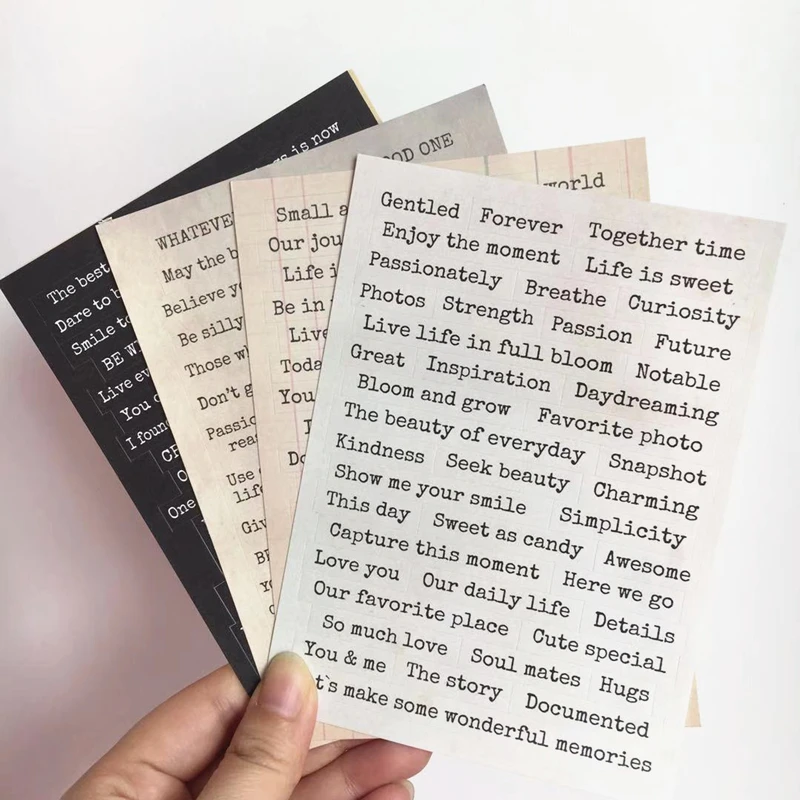 Gentled Forever Together time
Enjoy the moment Life is sweet
Passionately Breathe Curiosity
Photos Strength Passion Future
Live life in full bloom Notable
Great Inspiration Daydreaming
Bloom and grow Favorite photo
The beauty of everyday Snapshot
Kindness Seek beauty Charming
Show me your smile Simplicity
This day Sweet as candy Awesome
Capture this moment Here we go
Love you Our daily life Details
Our favorite place Cute special
So much love Soul mates Hugs
You & me The story Documented
t`s make some wonderful memories
world
Small a
Our jou
Life i
Be in
Live
Toda
You
Do
OD ONE
WHATEVE
May the b
Believe yo
Be silly
Those wh
Don't g
Passio
rea
Use
life
Giv
BE
is now
The best
Dare to b
Smile to
BE WI
Live ev
You
I foun
One